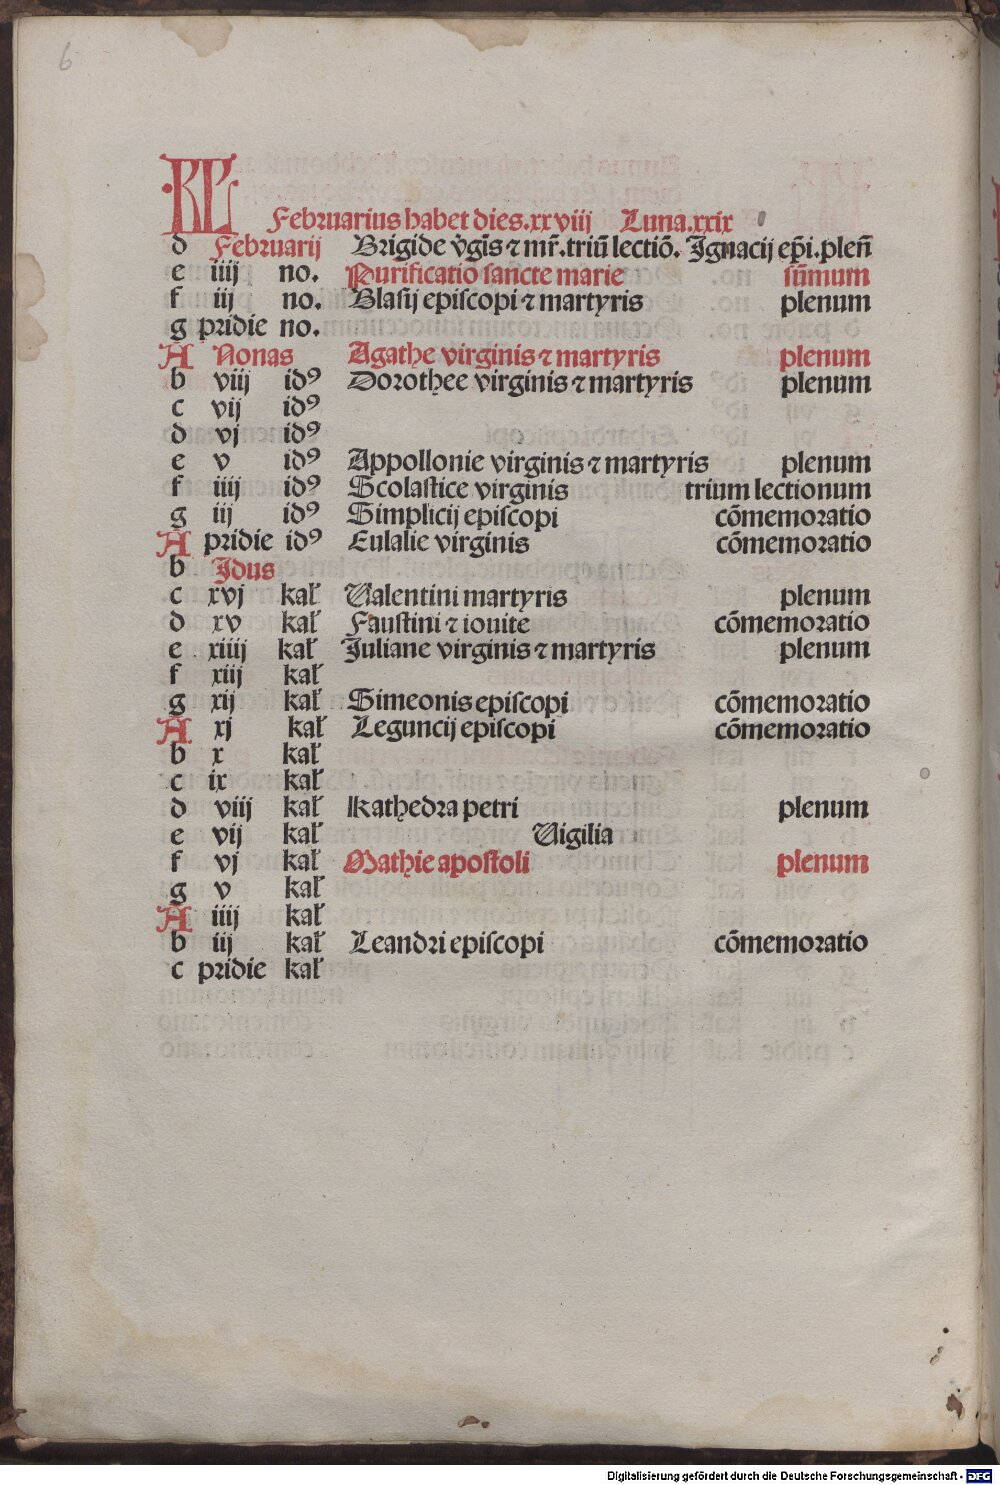 6
KL
Februarius habet dies.xxviij Luna.xxix
d Februarij Brigide v̄gīs ⁊ mr̄.triū lectiō. Ignacij ep̄i.pleñ
e iiij no. Purificatiō sancte marie sūmum
f iij no. Blasij episcopi ⁊ martyris plenum
g pridie no.
A Nonas Agathe virginis ⁊ martyris plenum
b viij idꝰ Dorothee virginis ⁊ martyris plenum
c vij idꝰ
d vj idꝰ
e v idꝰ Appollonie virginis ⁊ martyris plenum
f iiij idꝰ Scolastice virginis trium lectionum
g iij idꝰ Simplicij episcopi cōmemoratio
A pridie idꝰ Eulalie virginis cōmemoratio
b Idus
c xvj kal̄ Valentini martyris plenum
d xv kal̄ Faustini ⁊ iouite cōmemoratio
e xiiij kal̄ Juliane virginis ⁊ martyris plenum
f xiij kal̄
g xij kal̄ Simeonis episcopi cōmemoratio
A xj kal̄ Leguncij episcopi cōmemoratio
b x kal̄
c ix kal̄
d viij kal̄ Kathedra petri plenum
e vij kal̄ Vigilia
f vj kal̄ Mathie apostoli plenum
g v kal̄
A iiij kal̄
b iij kal̄ Leandri episcopi cōmemoratio
c pridie kal̄
Digitalisierung gefördert durch die Deutsche Forschungsgemeinschaft - DFG